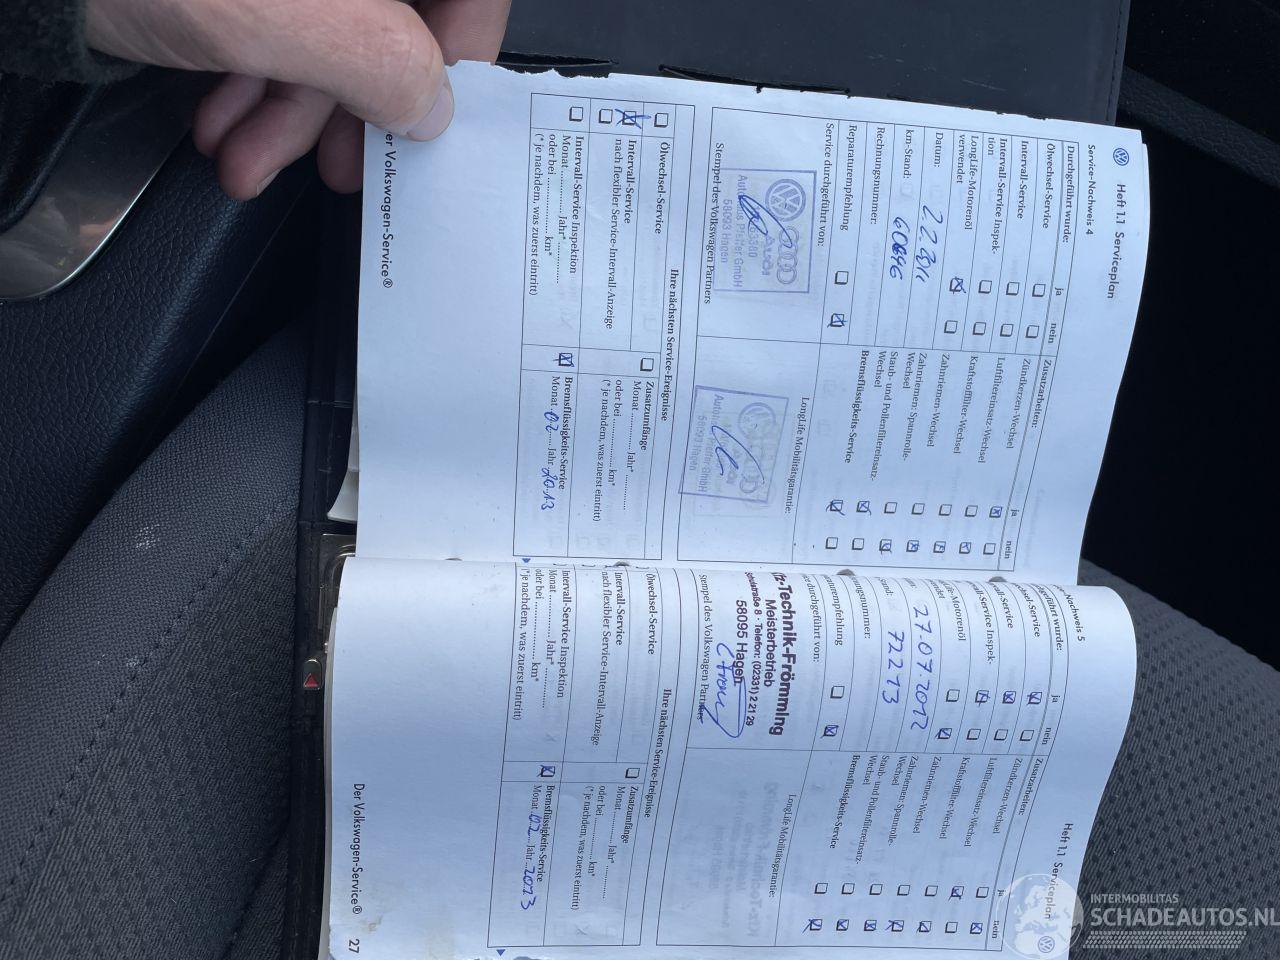 Heft 1.1 Serviceplan
Service-Nachweis 4
Durchgeführt wurde: ja nein
Ölwechsel-Service
Intervall-Service
Intervall-Service Inspek-
tion
LongLife-Motorenöl
verwendet
Datum:
km-Stand: 60646
Rechnungsnummer:
Reparaturempfehlung
Service durchgeführt von:
58093 Hagen
Stempel des Volkswagen Partners
Zusatzarbeiten: ja nein
Zündkerzen-Wechsel
Luftfiltereinsatz-Wechsel
Kraftstofffilter-Wechsel
Zahnriemen-Wechsel
Zahnriemen: Spannrolle-
Wechsel
Staub- und Pollenfiltereinsatz-
Wechsel
Bremsflüssigkeits-Service
LongLife Mobilitätsgarantie:
58093 Hagen
Ihre nächsten Service-Ereignisse
Ölwechsel-Service
Intervall-Service
nach flexibler Service-Intervall-Anzeige
Intervall-Service Inspektion
Monat ............ Jahr* ............
oder bei .................... km*
(* je nachdem, was zuerst eintritt)
Zusatzumfänge
Monat ............ Jahr* ............
oder bei .................... km*
(* je nachdem, was zuerst eintritt)
Bremsflüssigkeits-Service
Monat 02 Jahr 2013
Der Volkswagen-Service®
Heft 1.1 Serviceplan
-Nachweis 5
geführt wurde: ja nein
chsel-Service
-Service
-Service Inspek-
Life-Motorenöl
27.07.2012
stand: 72213
ungsnummer:
raturempfehlung
durchgeführt von:
-Technik-Frömming
Meisterbetrieb
8 · Telefon: (02331) 2 21 29
58095 Hagen
Stempel des Volkswagen Partners
Zusatzarbeiten: ja nein
Zündkerzen-Wechsel
Luftfiltereinsatz-Wechsel
Kraftstofffilter-Wechsel
Zahnriemen-Wechsel
Zahnriemen: Spannrolle-
Wechsel
Staub- und Pollenfiltereinsatz-
Wechsel
Bremsflüssigkeits-Service
LongLife Mobilitätsgarantie:
Ihre nächsten Service-Ereignisse
Ölwechsel-Service
Intervall-Service
nach flexibler Service-Intervall-Anzeige
Intervall-Service Inspektion
Monat ............ Jahr* ............
oder bei .................... km*
(* je nachdem, was zuerst eintritt)
Zusatzumfänge
Monat ............ Jahr* ............
oder bei .................... km*
(* je nachdem, was zuerst eintritt)
Bremsflüssigkeits-Service
Monat 02 Jahr 2013
Der Volkswagen-Service®
27
INTERMOBILITAS
SCHADEAUTOS.NL